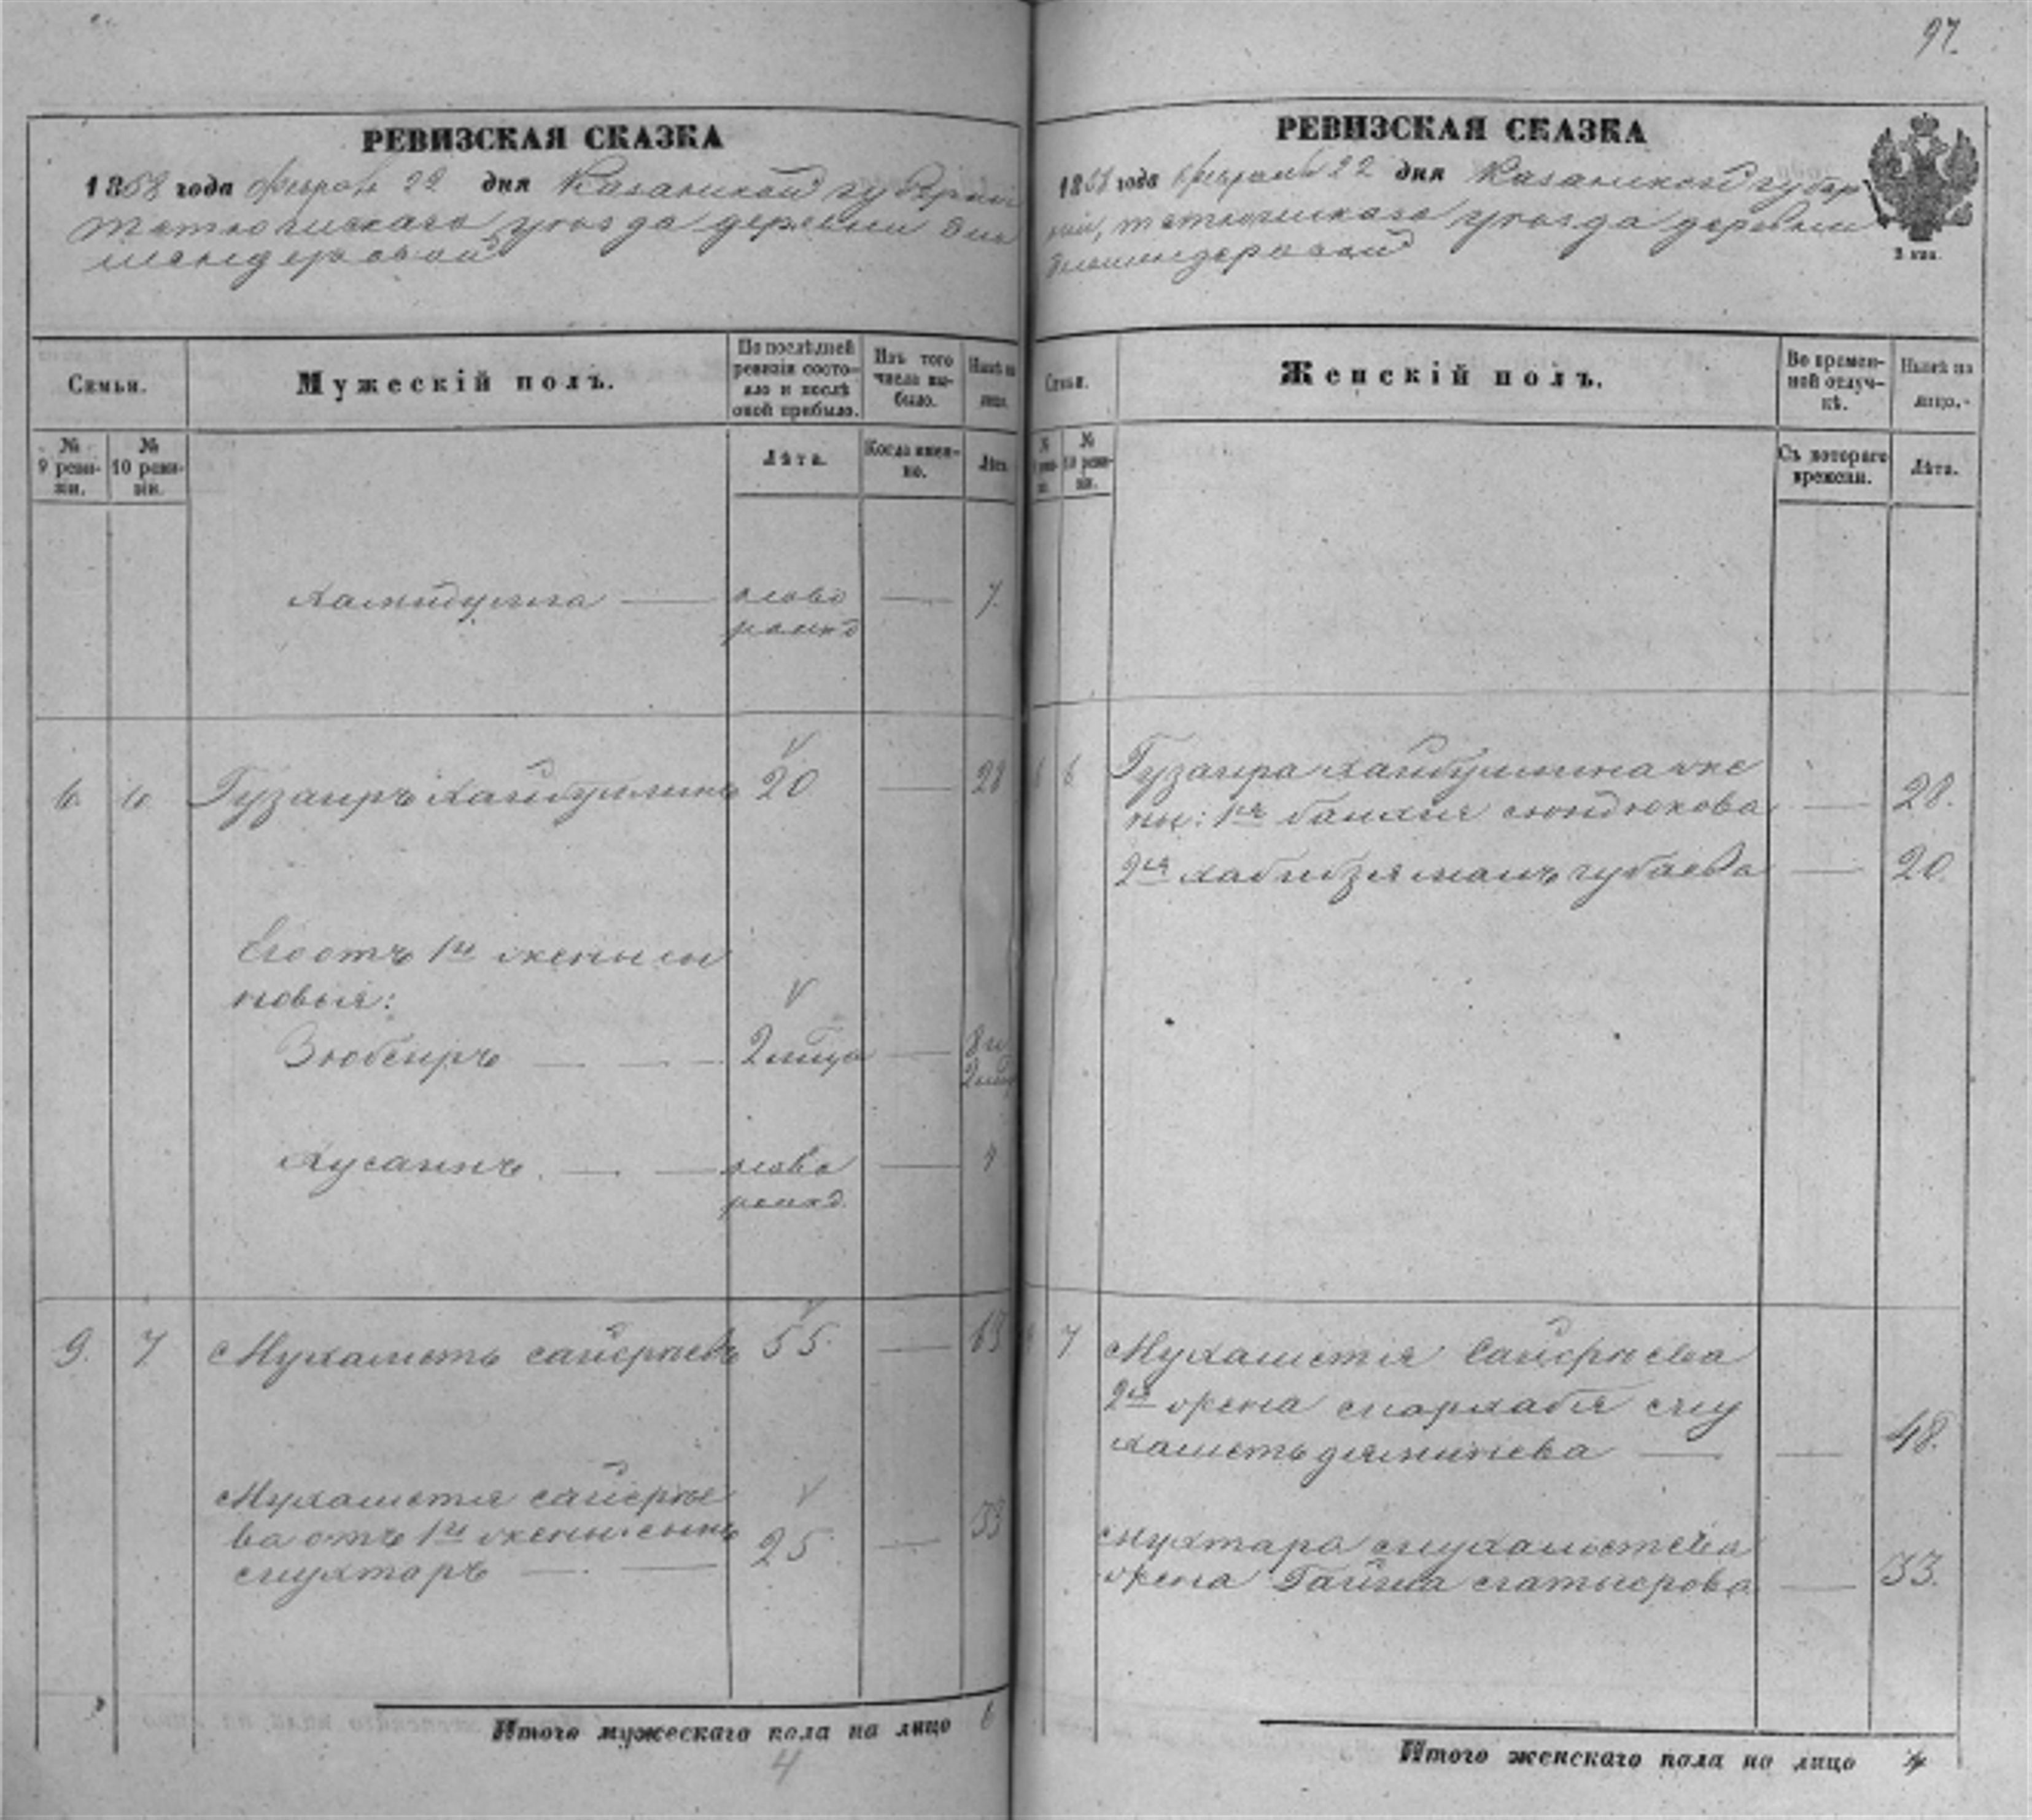 97.
РЕВИЗСКАЯ СКАЗКА
1858 года февраля 22 дня Казанской губернии
тетюшскаго уезда деревни Биш
мендеровой
Семьи.
Мужескій полъ.
По послѣдней ревизіи состояло и послѣ оной прибыло.
Изъ того числа выбыло.
Нынѣ на лицо.
№ 9 ревизіи.
№ 10 ревизіи.
Лѣта.
Когда именно.
Лѣта.
Хамидулла — ново рожд — 7.
6. 6. Гузаиръ Хайбуллинъ 20 — 28
Его отъ 1й жены сы
новья:
Зюбеиръ — — — 2 мѣсяца — 8 и 2 мѣс
Хусаинъ — — ново рожд. — 1
9. 7 Мухаметь Сайфріевъ 55. — 63
Мухаметя Сайфріе
ва отъ 1й жены сынъ
Мухтаръ — — 25 — 33
Итого мужескаго пола на лицо 6
4
РЕВИЗСКАЯ СКАЗКА
1858 года февраля 22 дня Казанской губер
ніи, тетюшскаго уезда деревни
Бишмендеровой
2 коп.
Семьи.
Женскій полъ.
Во временной отлучкѣ.
Нынѣ на лицо.
№ 9 ревизіи.
№ 10 ревизіи.
Съ котораго времени.
Лѣта.
6 6 Гузаира Хайбуллина же
ны: 1я Сюндюкова — 28.
2я Хабибзямалъ Губаева — 20.
9 7 Мухаметя Сайфріева
2я жена Му
хаметьдяминева — — 48.
Мухтара Мухаметева
жена — 33.
Итого женскаго пола на лицо 4